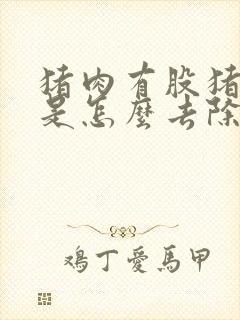 猪肉有股猪
是怎麼去除
鸡丁愛馬甲